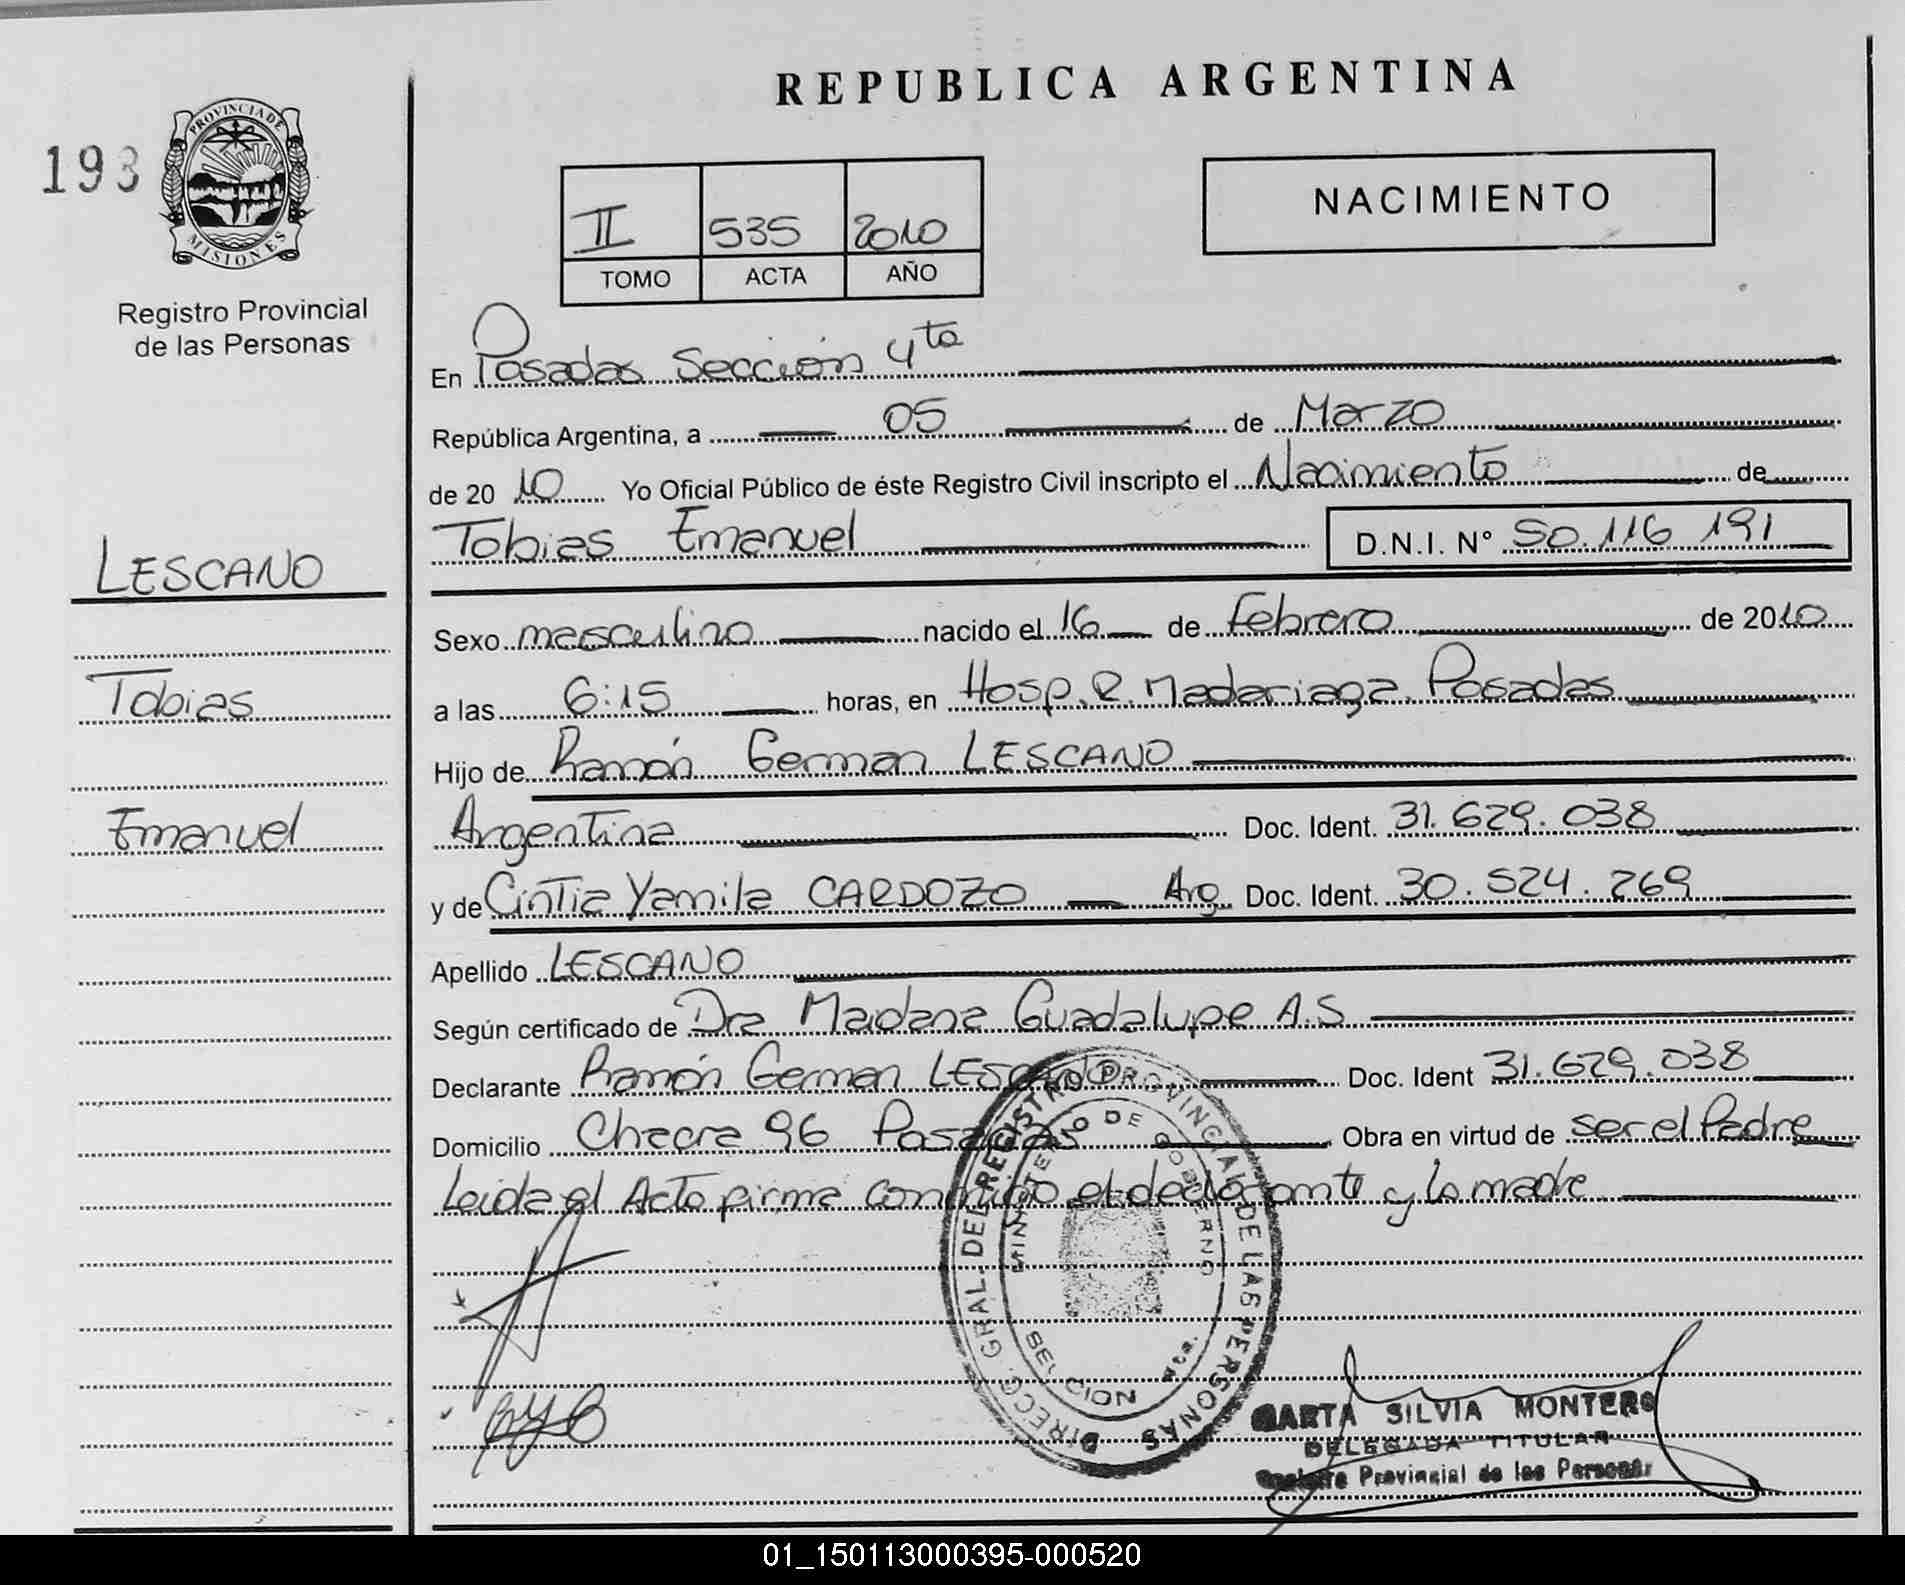 REPUBLICA ARGENTINA
193
PROVINCIA DE MISIONES
Registro Provincial
de las Personas
NACIMIENTO
II 535 2010
TOMO ACTA AÑO
En Posadas Sección 4ta
República Argentina, a 05 de Marzo
de 20 10 Yo Oficial Público de éste Registro Civil inscripto el Nacimiento de
Tobias Emanuel D.N.I. N° 50.116 191
LESCANO
Tobias
Emanuel
Sexo masculino nacido el 16 de febrero de 2010
a las 6:15 horas, en Hosp. R. Madariaga. Posadas
Hijo de Ramón German LESCANO
Argentina Doc. Ident. 31.629.038
y de Cintia Yamila CARDOZO Arg Doc. Ident. 30.524.269
Apellido LESCANO
Según certificado de Dra Maidana Guadalupe A.S
Declarante Ramón German LESCANO Doc. Ident 31.629.038
Domicilio Chacra 96 Posadas Obra en virtud de ser el Padre
Leida el Acta firma conmigo el declarante y la madre
DIRECC. GRAL. DEL REGISTRO PROVINCIAL DE LAS PERSONAS
MINISTERIO DE GOBIERNO
SECCION 4ta.
MARTA SILVIA MONTERO
DELEGADA TITULAR
Registro Provincial de las Personas
01_150113000395-000520